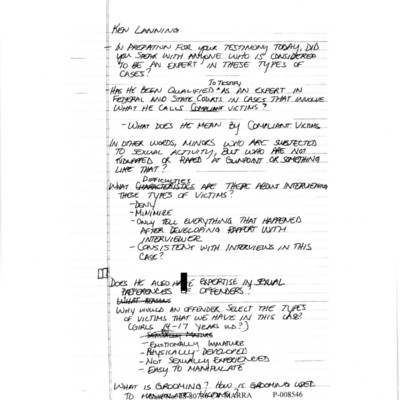 KEN LANNING
- IN PREPATION FOR YOUR TESTIMONY TODAY, DID
YOU SPEAK WITH ANYONE WHO IS CONSIDERED
TO BE AN EXPERT IN THESE TYPES OF
CASES?
TO TESTIFY
HAS HE BEEN QUALIFIED ^ AS AN EXPERT IN
FEDERAL AND STATE COURTS IN CASES THAT INVOLVE
WHAT HE CALLS COMPLIANT VICTIMS?
- WHAT DOES HE MEAN BY COMPLIANT VICTIMS
IN OTHER WORDS, MINORS WHO ARE SUBJECTED
TO SEXUAL ACTIVITY, BUT WHO ARE NOT
KIDNAPPED OR RAPED AT GUNPOINT OR SOMETHING
LIKE THAT?
DIFFICULTIES
WHAT CHARACTERISTICS ARE THERE ABOUT INTERVIEWING
THESE TYPES OF VICTIMS?
- DENY
- MINIMIZE
- ONLY TELL EVERYTHING THAT HAPPENED
AFTER DEVELOPING RAPPORT WITH
INTERVIEWER
- CONSISTENT WITH INTERVIEWS IN THIS
CASE?
DOES HE ALSO HAVE EXPERTISE IN SEXUAL
PREFERENCES OF OFFENDERS?
WHAT
WHY WOULD AN OFFENDER SELECT THE TYPES
OF VICTIMS THAT WE HAVE IN THIS CASE?
(GIRLS 14-17 YEARS OLD?)
- SEXUALLY MATURE
- EMOTIONALLY IMMATURE
- PHYSICALLY DEVELOPED
- NOT SEXUALLY EXPERIENCED
- EASY TO MANIPULATE
WHAT IS GROOMING? HOW IS GROOMING USED
TO MARRA P-008546